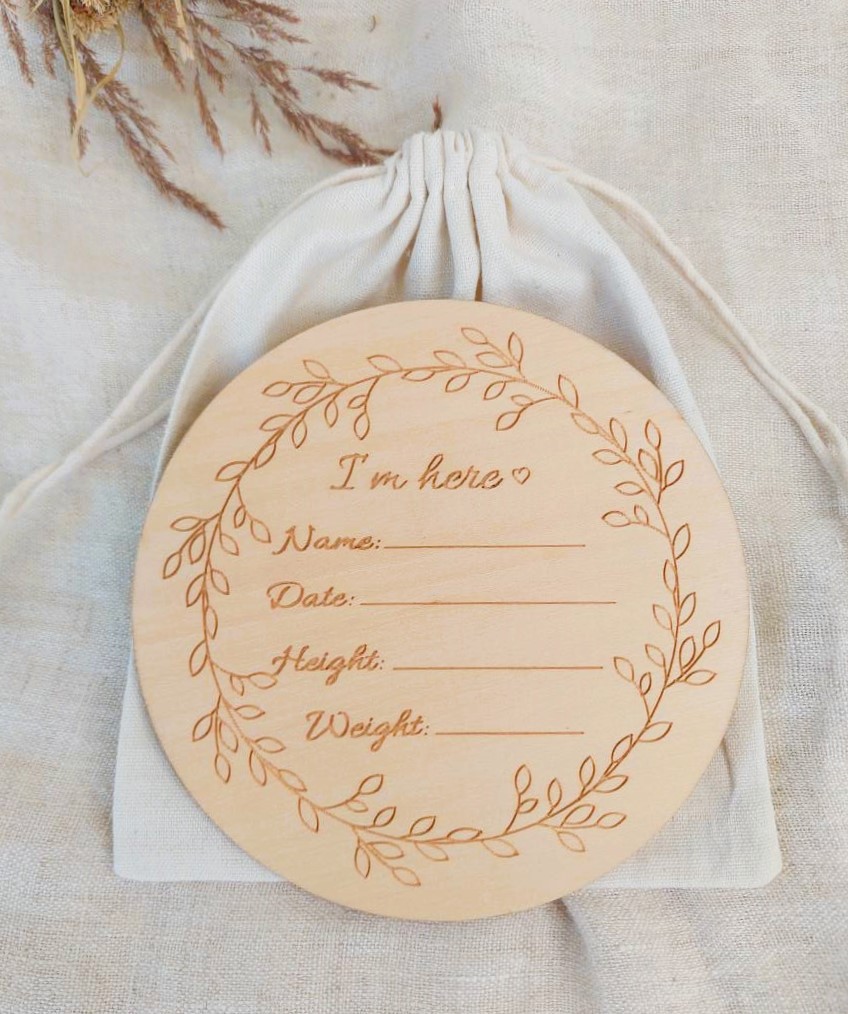 I'm here ♡
Name:
Date:
Height:
Weight: